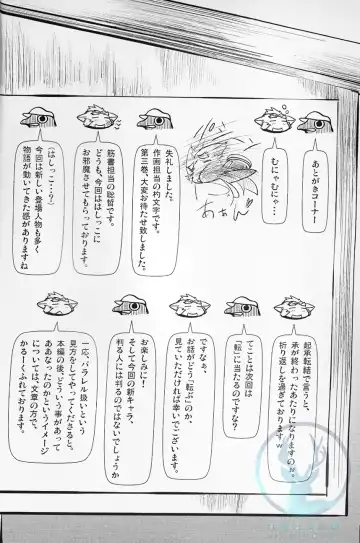 あとがきコーナー
むにゃむにゃ…
わぁん
失礼しました。
作画担当の杓文字です。
第三巻、大変お待たせ致しました。
筋書担当の聡哲です。
どうも、今回ははしっこに
お邪魔させてもらっております。
(はしっこ…?)
今回は新しい登場人物も多く
物語が動いてきた感がありますね
起承転結で言うと、
承が終わったあたりになりますのぉ。
折り返しを過ぎております
てことは次回は
「転」に当たるのですな?
ですなぁ、
お話がどう「転ぶ」のか、
見ていただければ幸いでございます。
お楽しみに!
そして今回の新キャラ、
判る人には判るのではないでしょうか
一応、パラレル扱いという
見方をしてやってくださると。
本編の後、どういう事があって
ああなったのかというイメージ
については、文章の方で、
かるーくふれております。